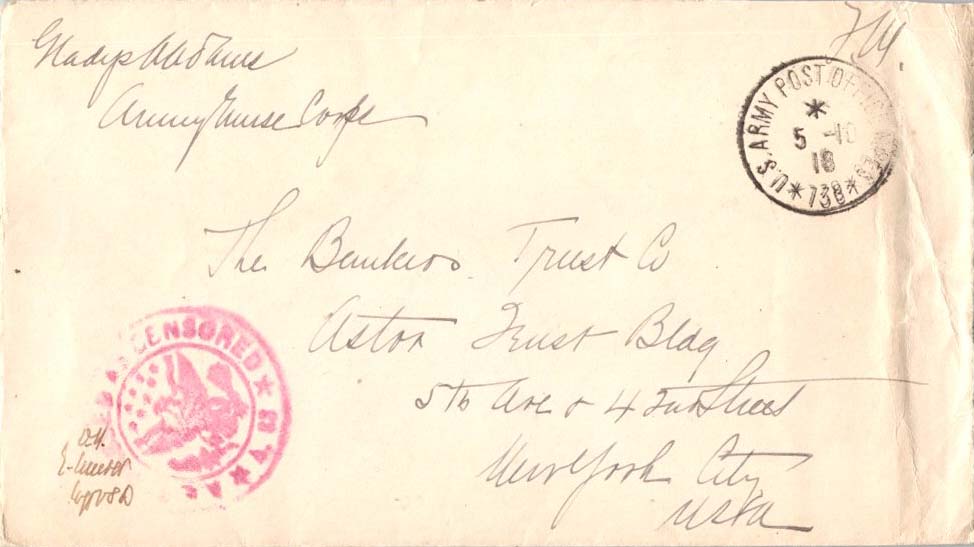 Gladys
Army Nurse Corps
U.S. ARMY POST OFFICE
5 -10
18
*738*
The Bankers Trust Co
Astor Trust Bldg
5th Ave & 42nd Street
New York City
USA
CENSORED
A.E.F.
O.K.